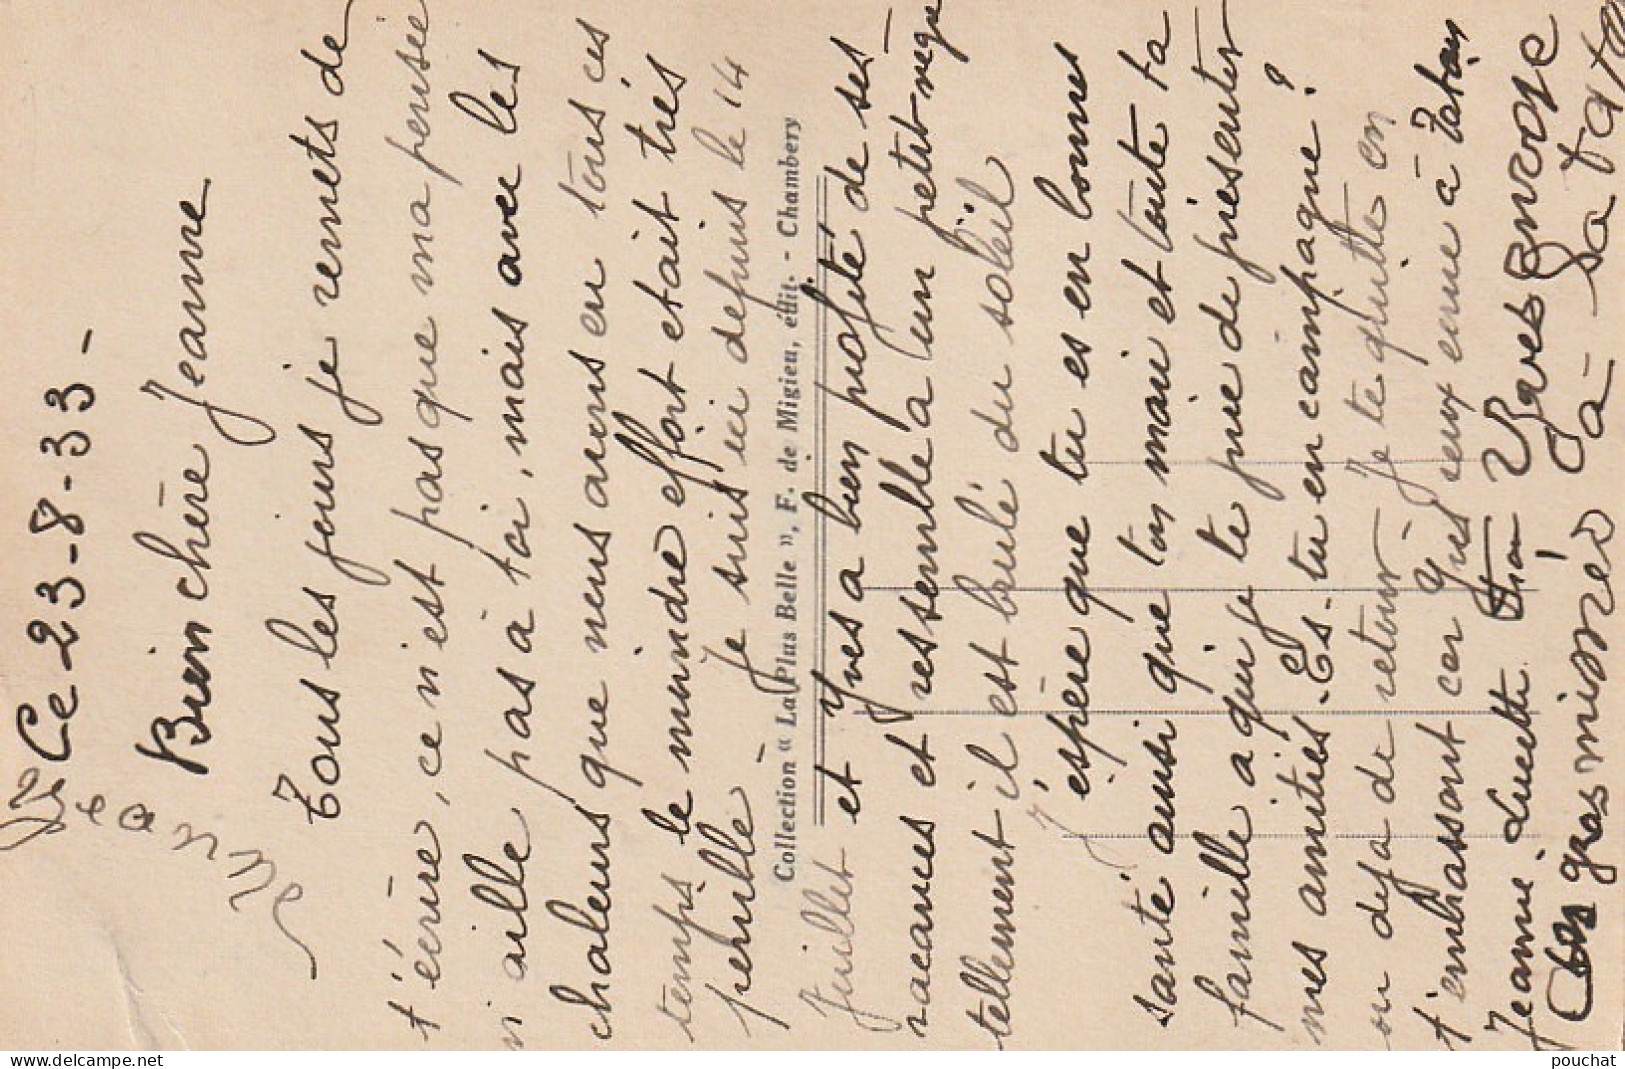 Ce 23-8-33-
Bien chère Jeanne
Tous les jours je remets de
t'écrire, ce n'est pas que ma pensée
n'aille pas à toi, mais avec les
chaleurs que nous avons eu tous ces
temps le moindre effort était très
pénible - Je suis ici depuis le 14
Collection « La Plus Belle », F. de Migieu, édit. - Chambery
Juillet et Yves a bien profité de ses
vacances et ressemble à un petit nègre
tellement il est brulé du soleil
J'espère que tu es en bonne
santé ainsi que ton mari et toute ta
famille à qui je te prie de présenter
mes amitiés - Es-tu en campagne ?
ou déjà de retour Je te quitte en
t'embrassant car Yves
Jeanne Lucette Yves envoie
gros mimi à sa
pouchat